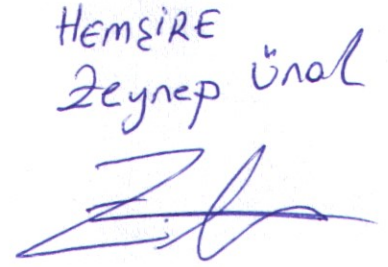 HEMŞİRE
Zeynep Ünal